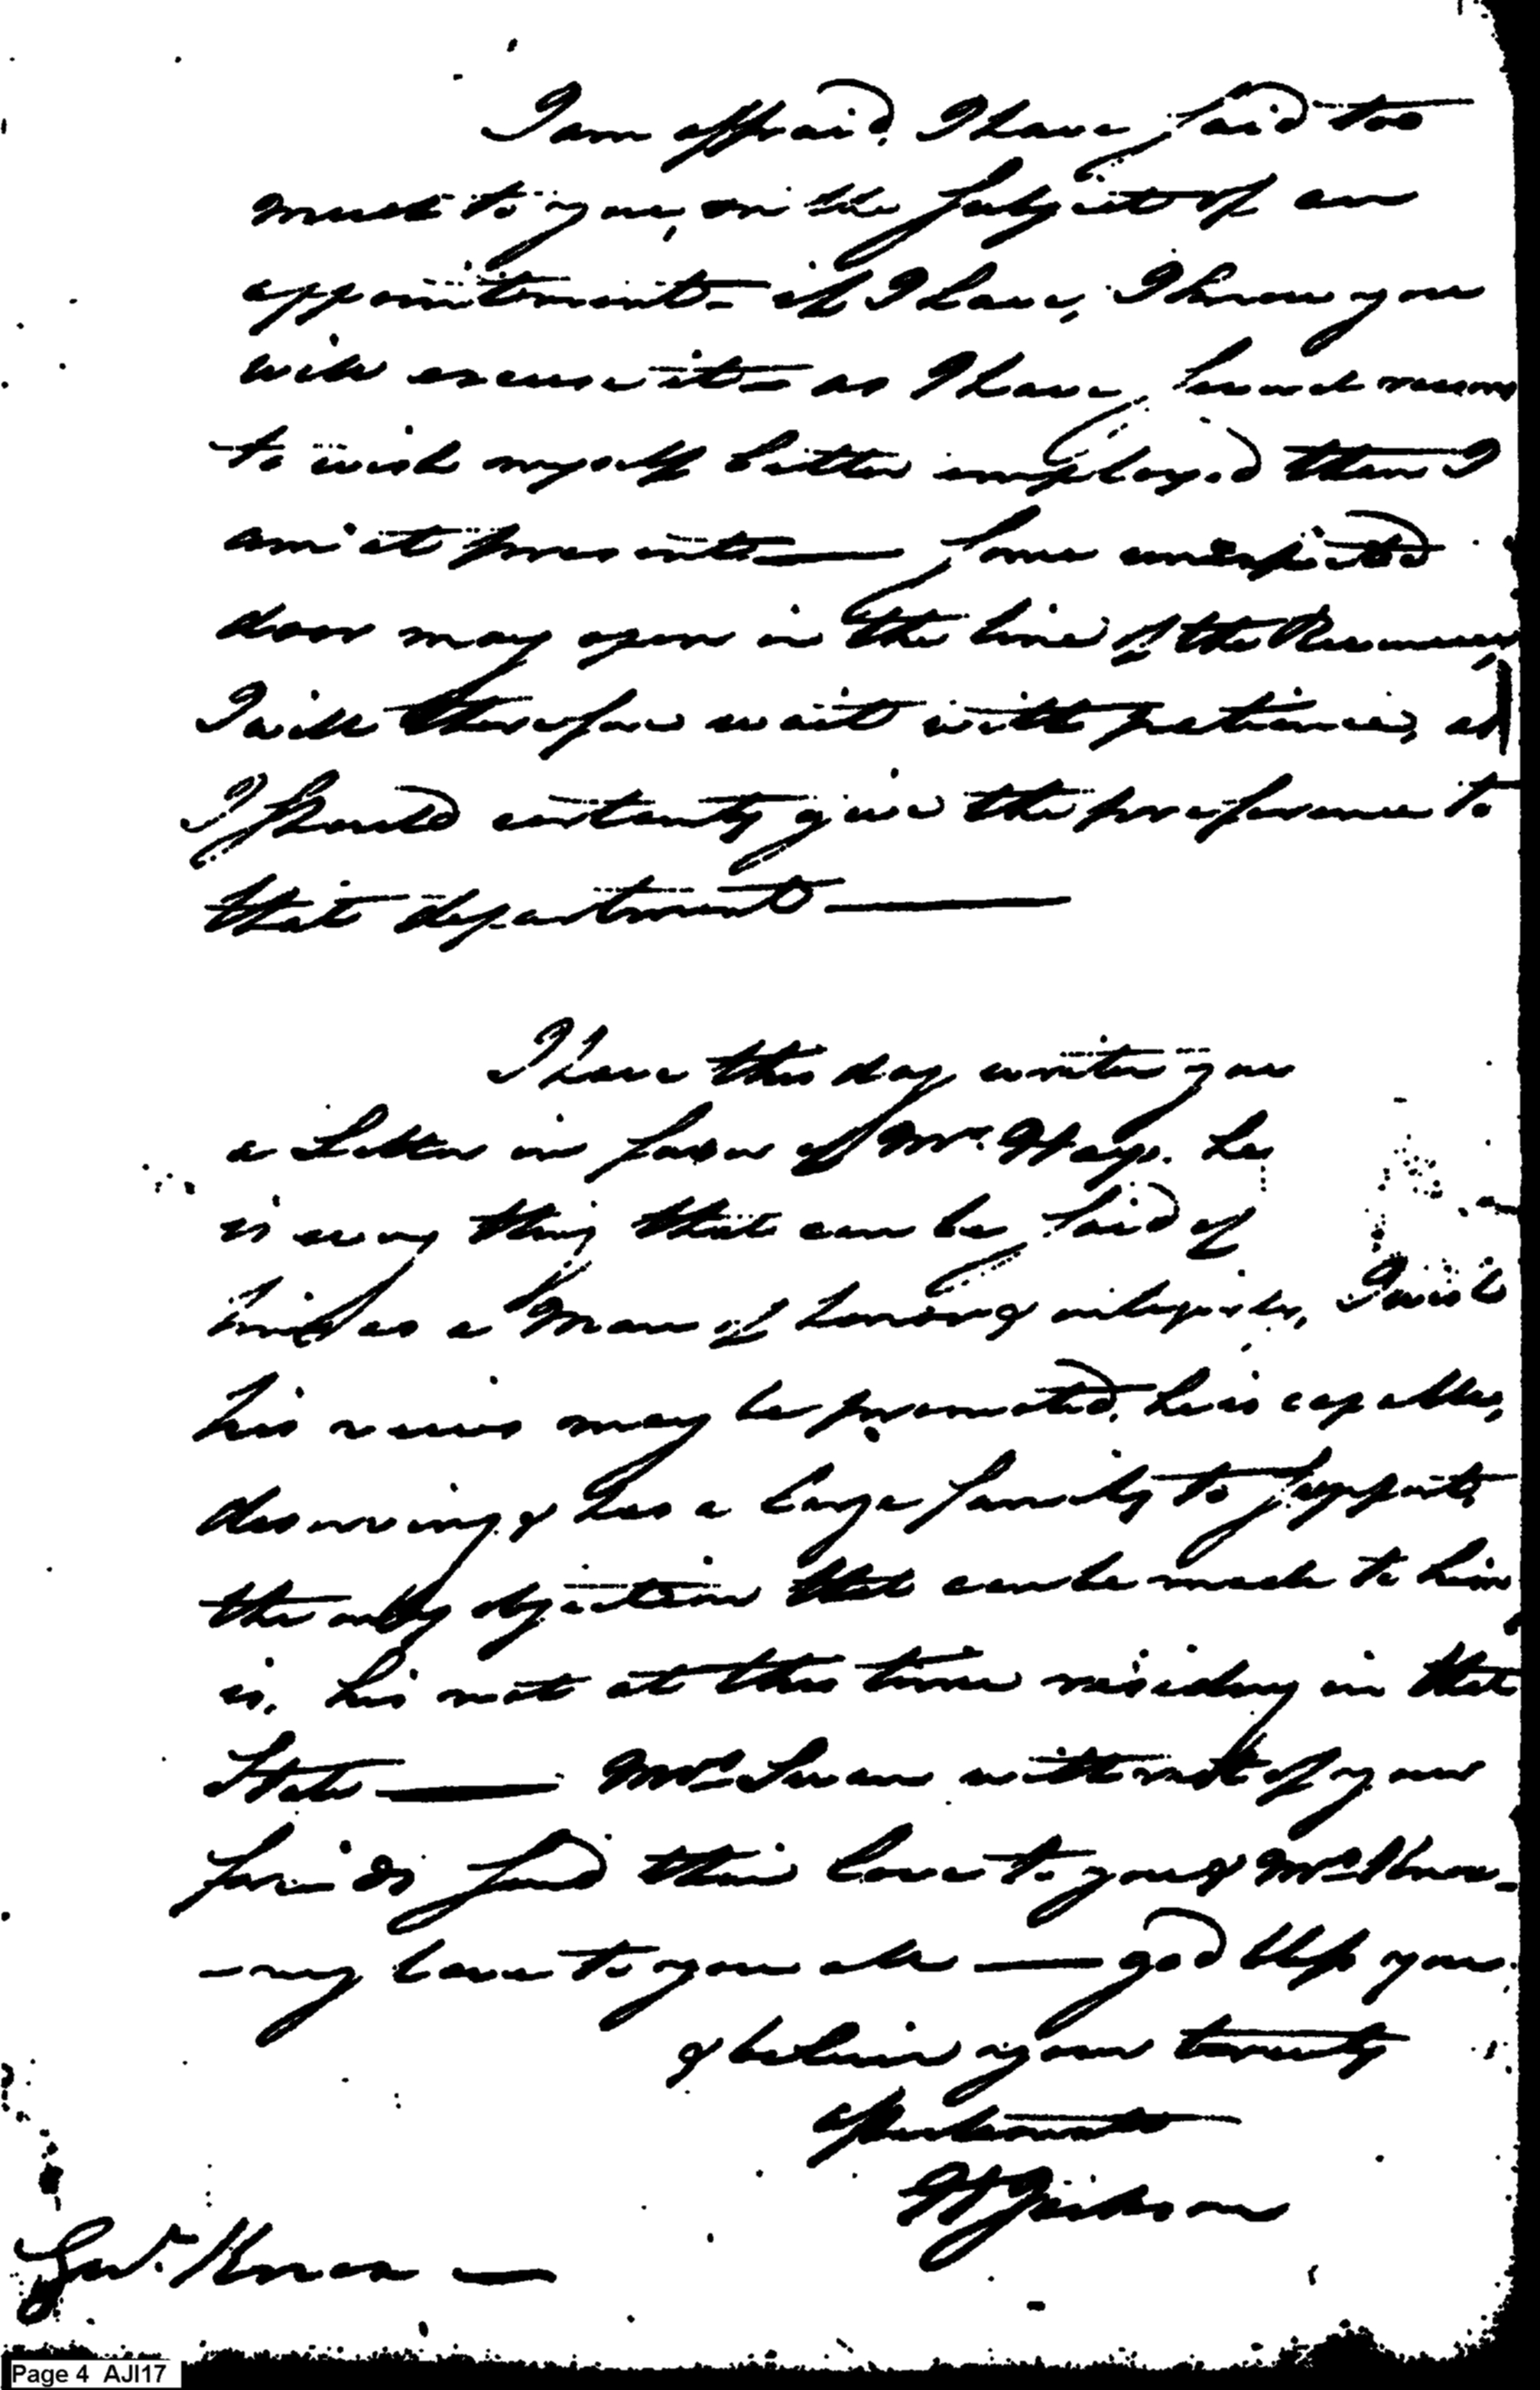 I am affraid, I have said too
much to you, on the subject of an
appointment = if I have, I know you
will excuse it = as I have, much reason
to wish myself better employed than I
am at present — Some unexpected
door may open in the line of the Revenue
I will therefore wait with patience, as
I should certainly give the preference to
that department —
I have this day written you
a Letter in favor of Mr. Hays. he
is every thing that can be said of
him, as a Man of honor & integrity, I wish
his views may be promoted, he is capable,
deserving, & has a large family to support,
the only objection that can be made to him
is, his not at this time residing in that
State — Mrs. Swan with rest of your
friends send their love to you & Mrs. Knox —
— my love to you all — god bless you.
& believe yours sincerely
& Affectionate
H Jackson
Genl. Knox —
Page 4 AJI17